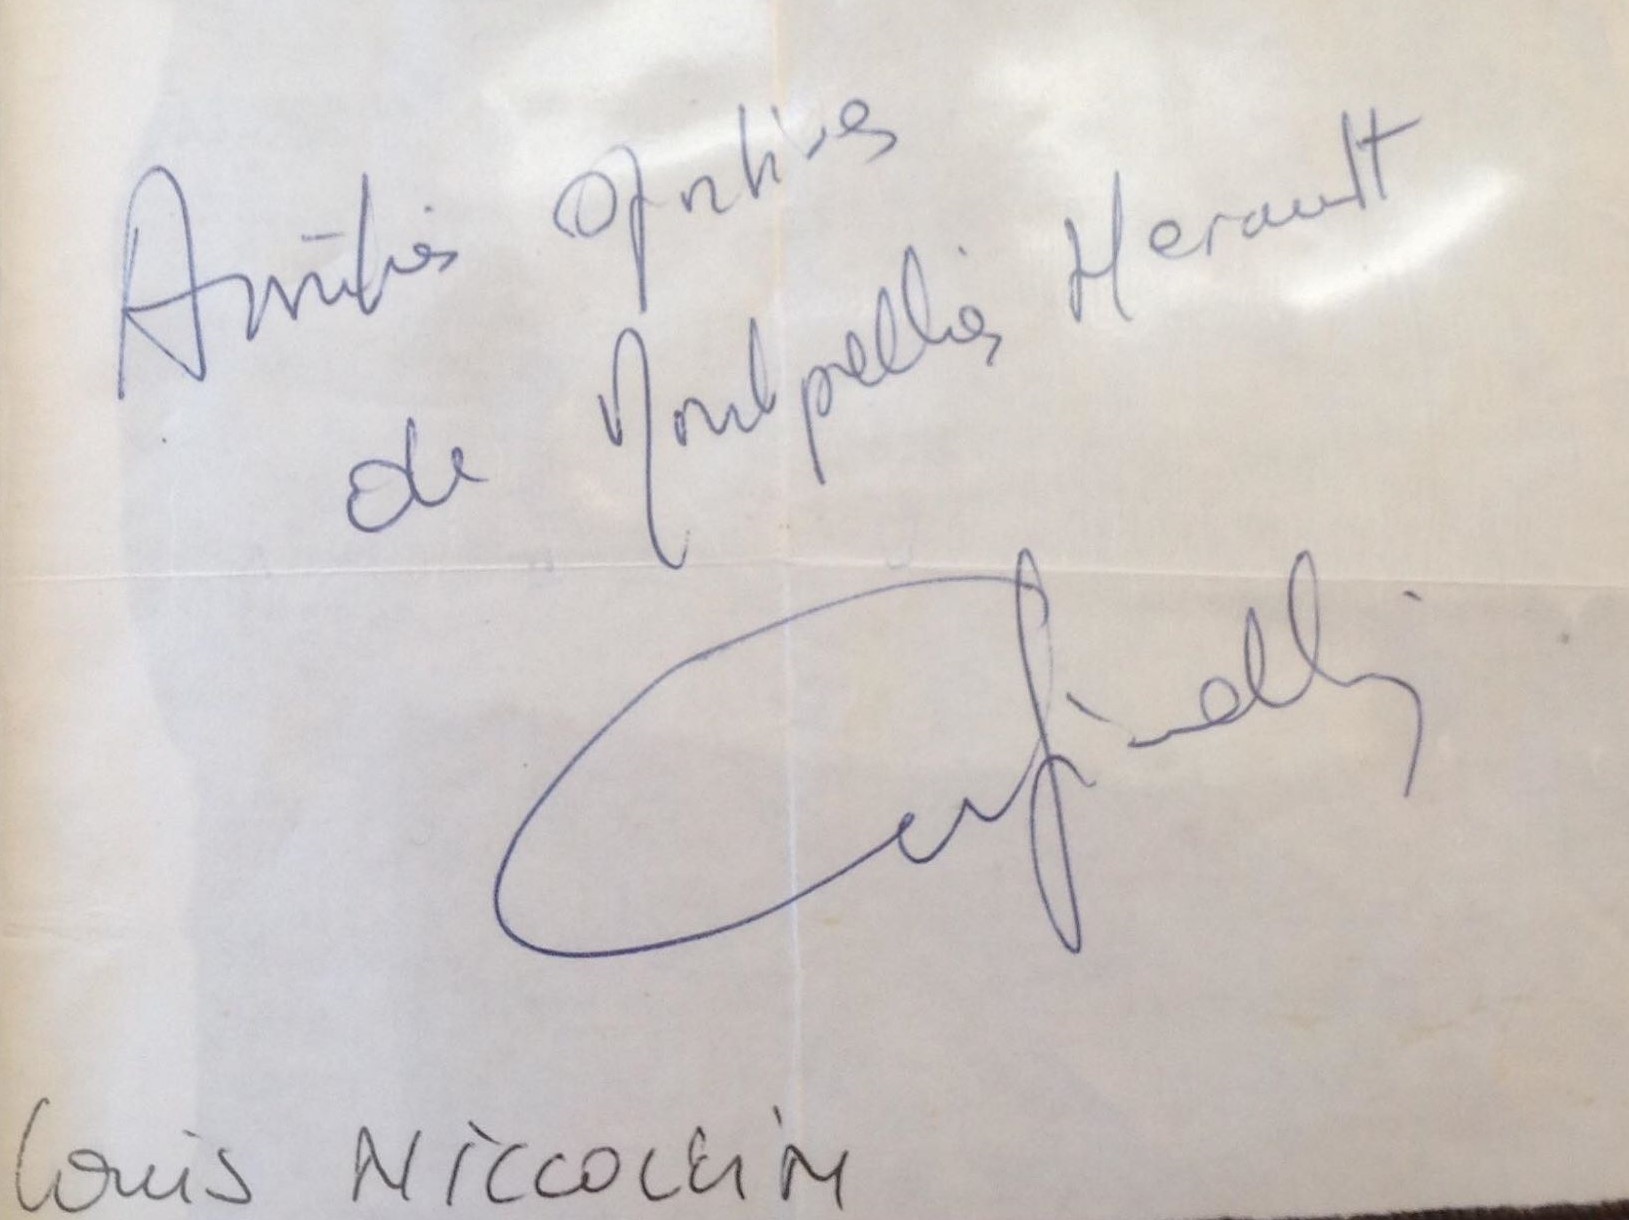 Amitiés sportives
de Montpellier Herault
Louis NICCOLLIN